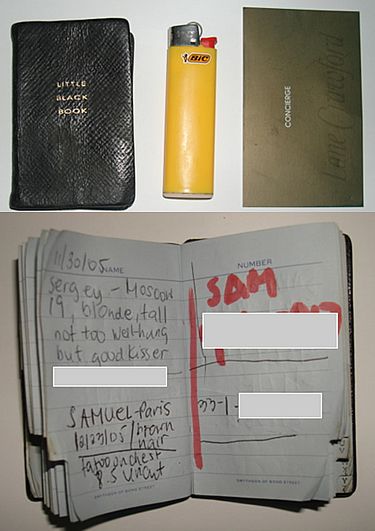 LITTLE
BLACK
BOOK
BIC
CONCIERGE
Lane Crawford
11/30/05
NAME
Sergey - Moscow
19, blonde, tall
not too well-hung
but good kisser
SAMUEL - Paris
10/23/05/brown
hair
tatoo on chest
8.5 uncut
SMYTHSON OF BOND STREET
NUMBER
SAM
33-1-
SMYTHSON OF BOND STREET